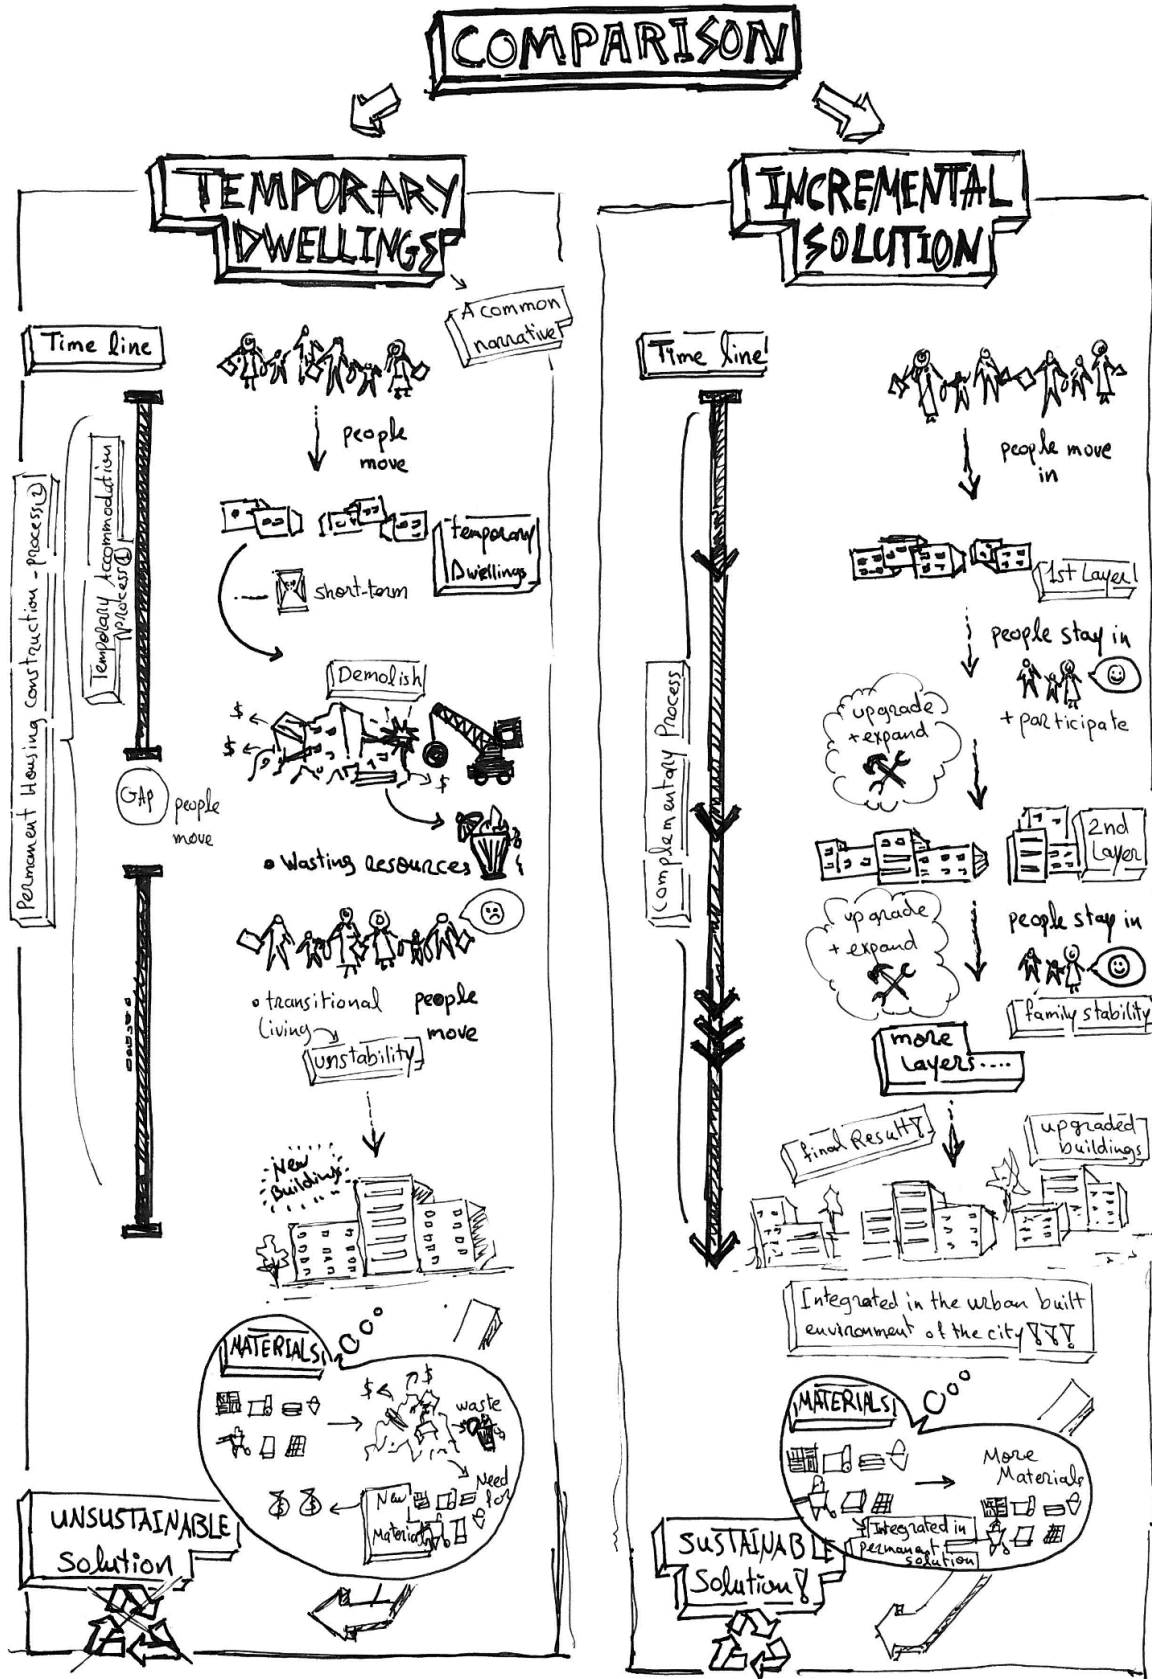 COMPARISON
TEMPORARY
DWELLINGS
A common
narrative
Time line
people
move
Permanent Housing Construction - process ②
Temporary Accommodation
process ①
temporary
Dwellings
short-term
Demolish
$
$
$
GAP
people
move
• Wasting resources
• transitional
living
unstability
people
move
New
Buildings
MATERIALS
$
$
waste
Need
for
New
Materials
$
$
UNSUSTAINABLE
Solution
INCREMENTAL
SOLUTION
Time line
people move
in
1st Layer
people stay in
+ participate
upgrade
+ expand
Complementary Process
2nd
Layer
upgrade
+ expand
people stay in
family stability
more
Layers....
final Result!
upgraded
buildings
Integrated in the urban built
environment of the city !!!
MATERIALS
More
Materials
Integrated in
permanent
solution
SUSTAINABLE
Solution!